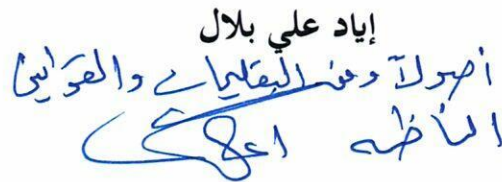 إياد علي بلال
أصولاً وفق التعليمات والقوانين
الناظمه